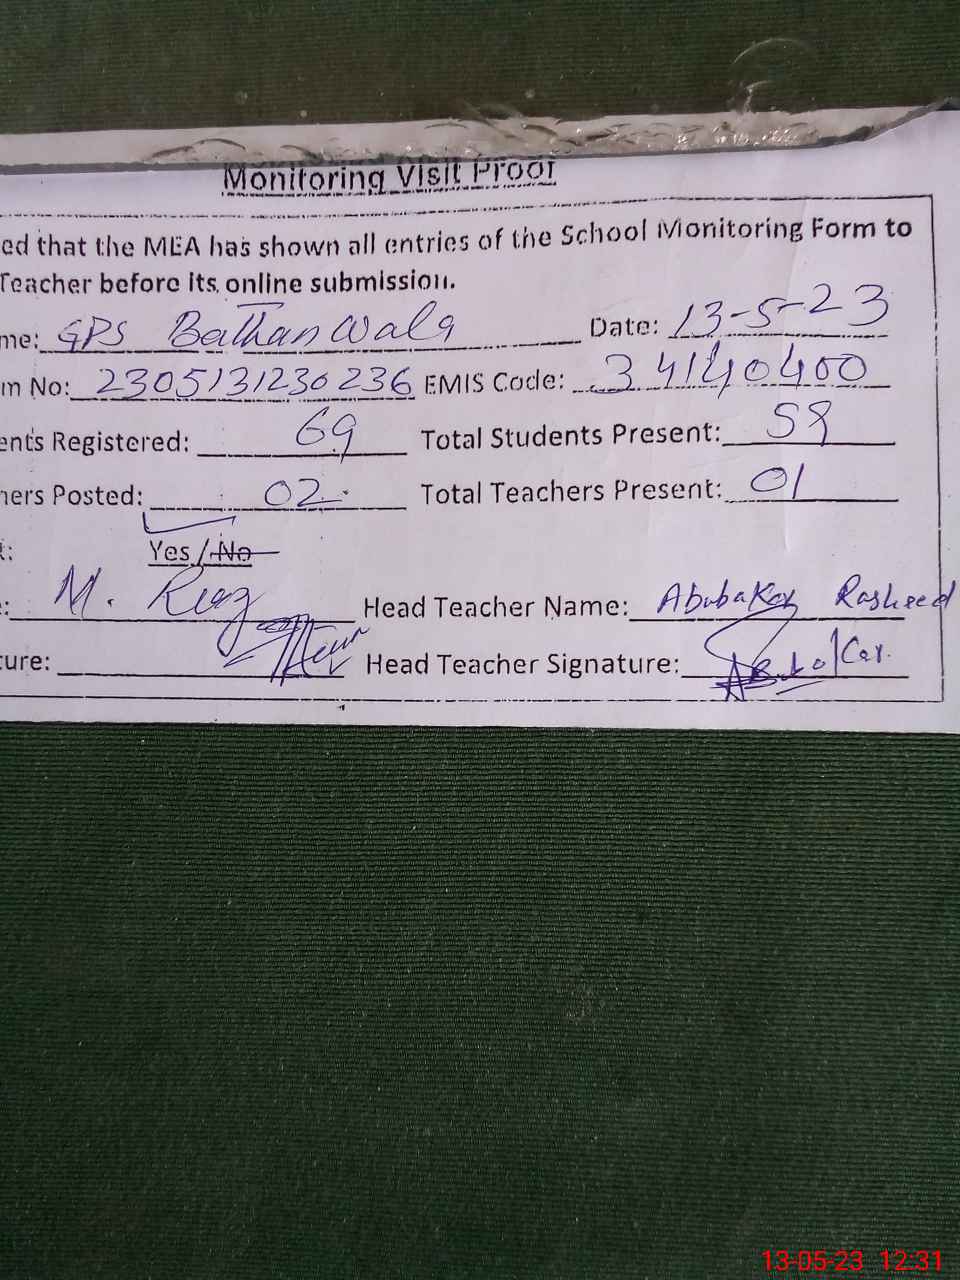 Monitoring Visit Proof
ed that the MEA has shown all entries of the School Monitoring Form to
Teacher before its online submission.
me: GPS Bathan Wala Date: 13-5-23
m No: 2305131230236 EMIS Code: 34140400
ents Registered: 69 Total Students Present: 58
hers Posted: 02 Total Teachers Present: 01
t: Yes / No
e: M. Riaz Head Teacher Name: Abubakar Rasheed
ture: Head Teacher Signature: Abubakar
13-05-23 12:31